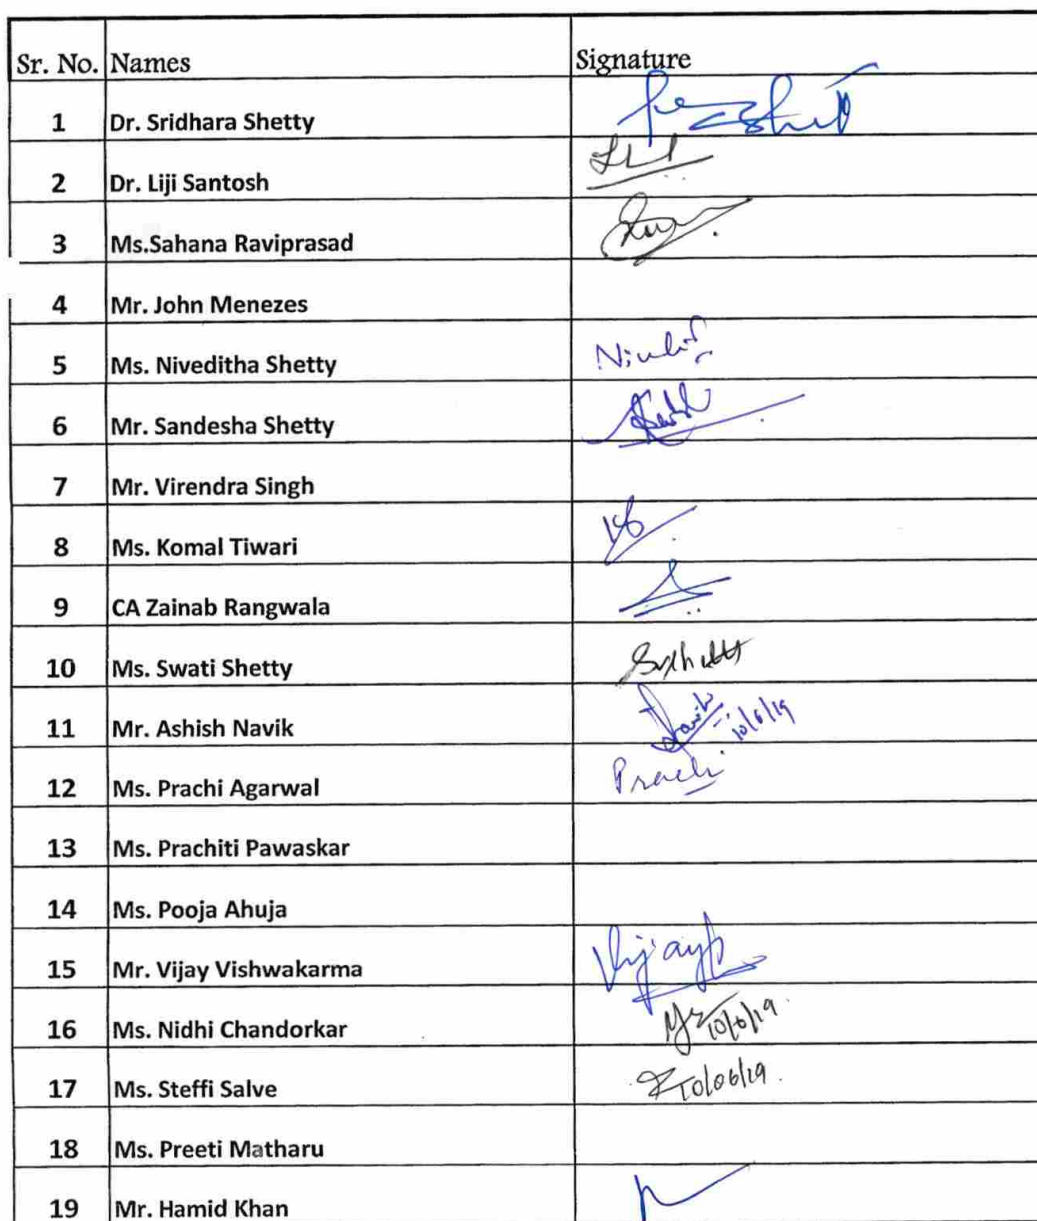 Sr. No. Names Signature
1 Dr. Sridhara Shetty
2 Dr. Liji Santosh
3 Ms.Sahana Raviprasad
4 Mr. John Menezes
5 Ms. Niveditha Shetty
6 Mr. Sandesha Shetty
7 Mr. Virendra Singh
8 Ms. Komal Tiwari
9 CA Zainab Rangwala
10 Ms. Swati Shetty
11 Mr. Ashish Navik 10/6/19
12 Ms. Prachi Agarwal Prachi
13 Ms. Prachiti Pawaskar
14 Ms. Pooja Ahuja
15 Mr. Vijay Vishwakarma
16 Ms. Nidhi Chandorkar 10/6/19
17 Ms. Steffi Salve 10/06/19
18 Ms. Preeti Matharu
19 Mr. Hamid Khan